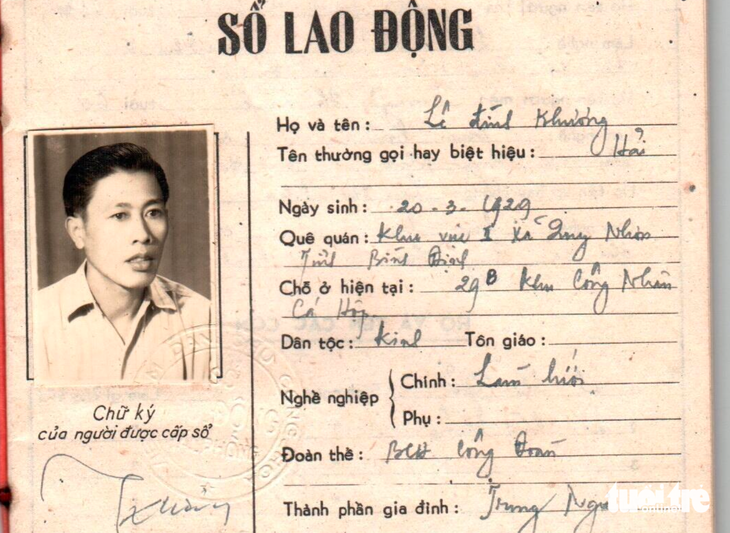 SỔ LAO ĐỘNG
Họ và tên: Lê đình Khương
Tên thường gọi hay biệt hiệu: Hải
Ngày sinh: 20-3-1929
Quê quán: Khu vực I xã Quy Nhơn
Tỉnh Bình Định
Chỗ ở hiện tại: 29B Khu Công Nhân
Cá Hộp
Dân tộc: Kinh Tôn giáo:
Nghề nghiệp
Chính: Làm lưới
Phụ:
Đoàn thể: BCH Công Đoàn
Thành phần gia đình: Trung
Chữ ký
của người được cấp sổ
tuổi trẻ